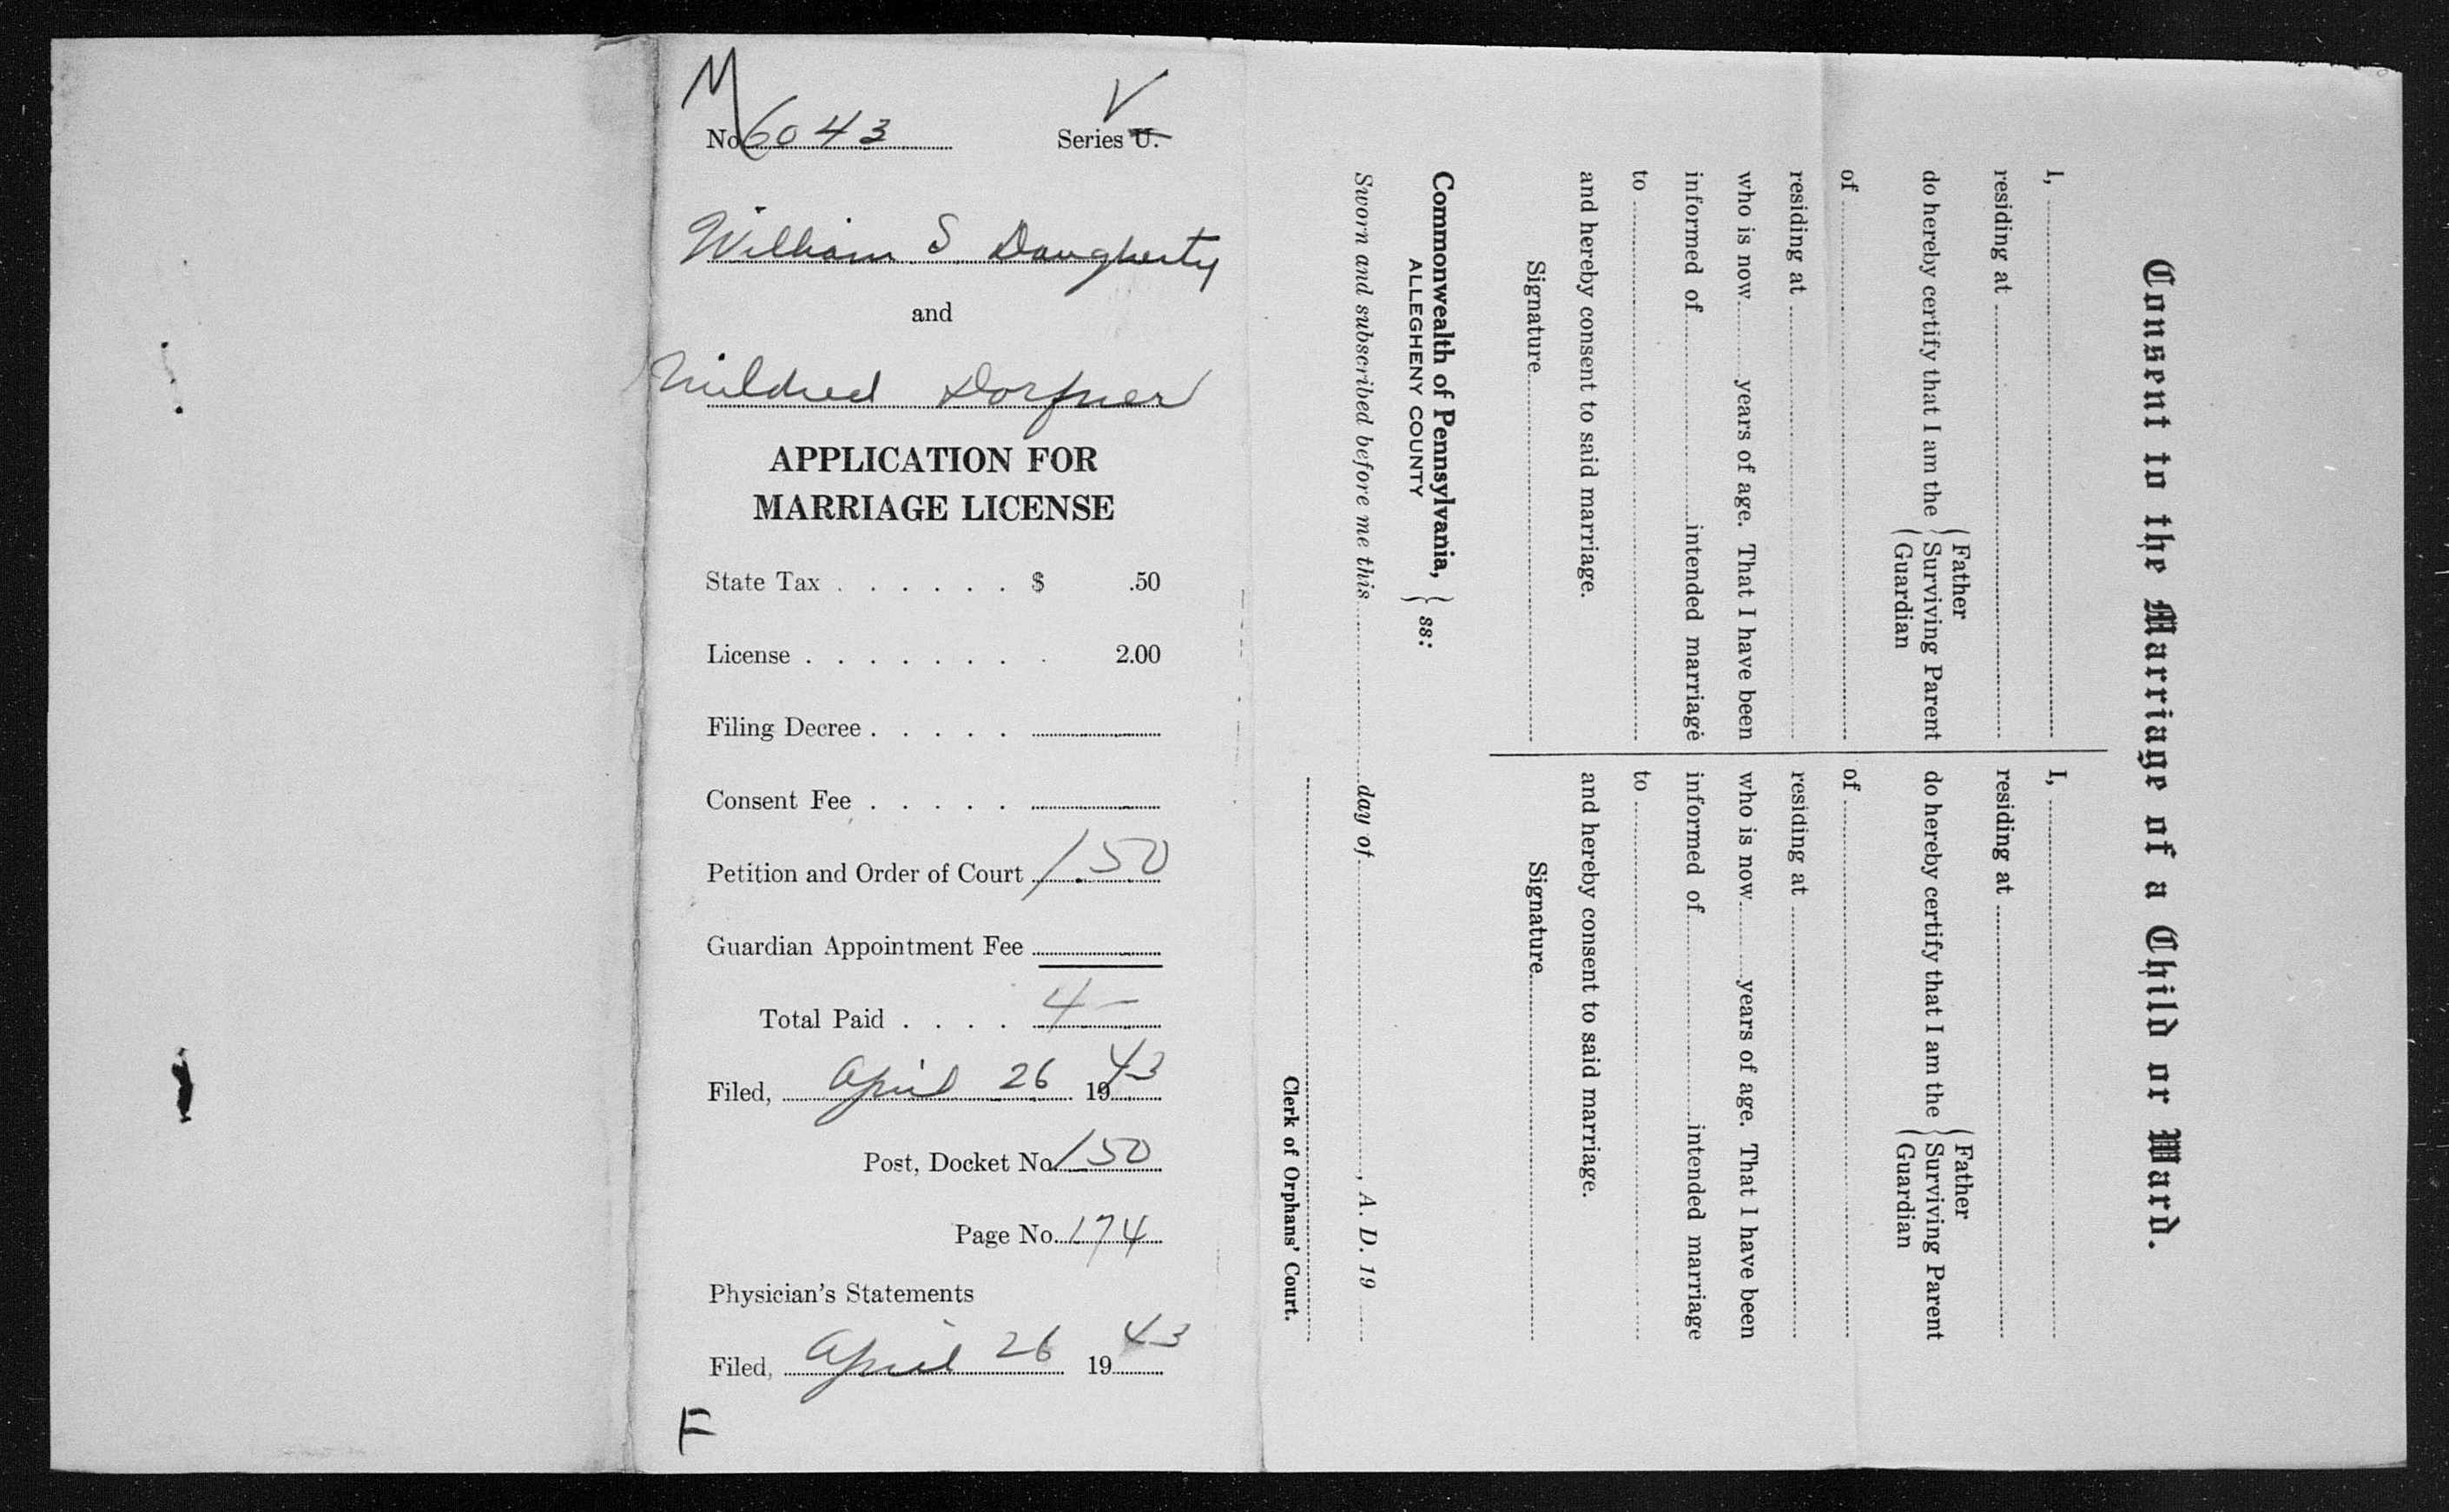 M
V
No. 6043 Series U.
William S Daugherty
and
Mildred Dorfner
APPLICATION FOR
MARRIAGE LICENSE
State Tax . . . . . . $ .50
License . . . . . . . . 2.00
Filing Decree . . . . .
Consent Fee . . . . .
Petition and Order of Court 1.50
Guardian Appointment Fee
Total Paid . . . . 4 —
Filed, April 26 1943
Post, Docket No. 150
Page No. 174
Physician's Statements
Filed, April 26 1943
F
Consent to the Marriage of a Child or Ward.
I,
residing at
do hereby certify that I am the { Father
Surviving Parent
Guardian
of
residing at
who is now ........ years of age. That I have been
informed of ........ intended marriage
to
and hereby consent to said marriage.
Signature
I,
residing at
do hereby certify that I am the { Father
Surviving Parent
Guardian
of
residing at
who is now ........ years of age. That I have been
informed of ........ intended marriage
to
and hereby consent to said marriage.
Signature
Commonwealth of Pennsylvania, } ss:
ALLEGHENY COUNTY
Sworn and subscribed before me this ........ day of ........, A. D. 19
Clerk of Orphans' Court.